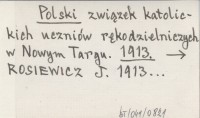 Polski związek katolic-
kich uczniów rękodzielniczych
w Nowym Targu. 1913. →
ROSIEWICZ J. 1913...
bT/041/0821